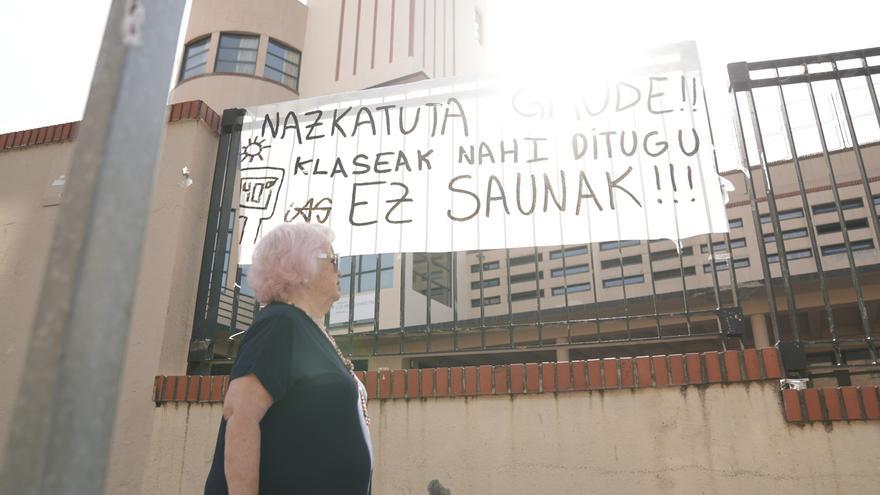 NAZKATUTA GAUDE!!
KLASEAK NAHI DITUGU,
EZ SAUNAK!!!
40º